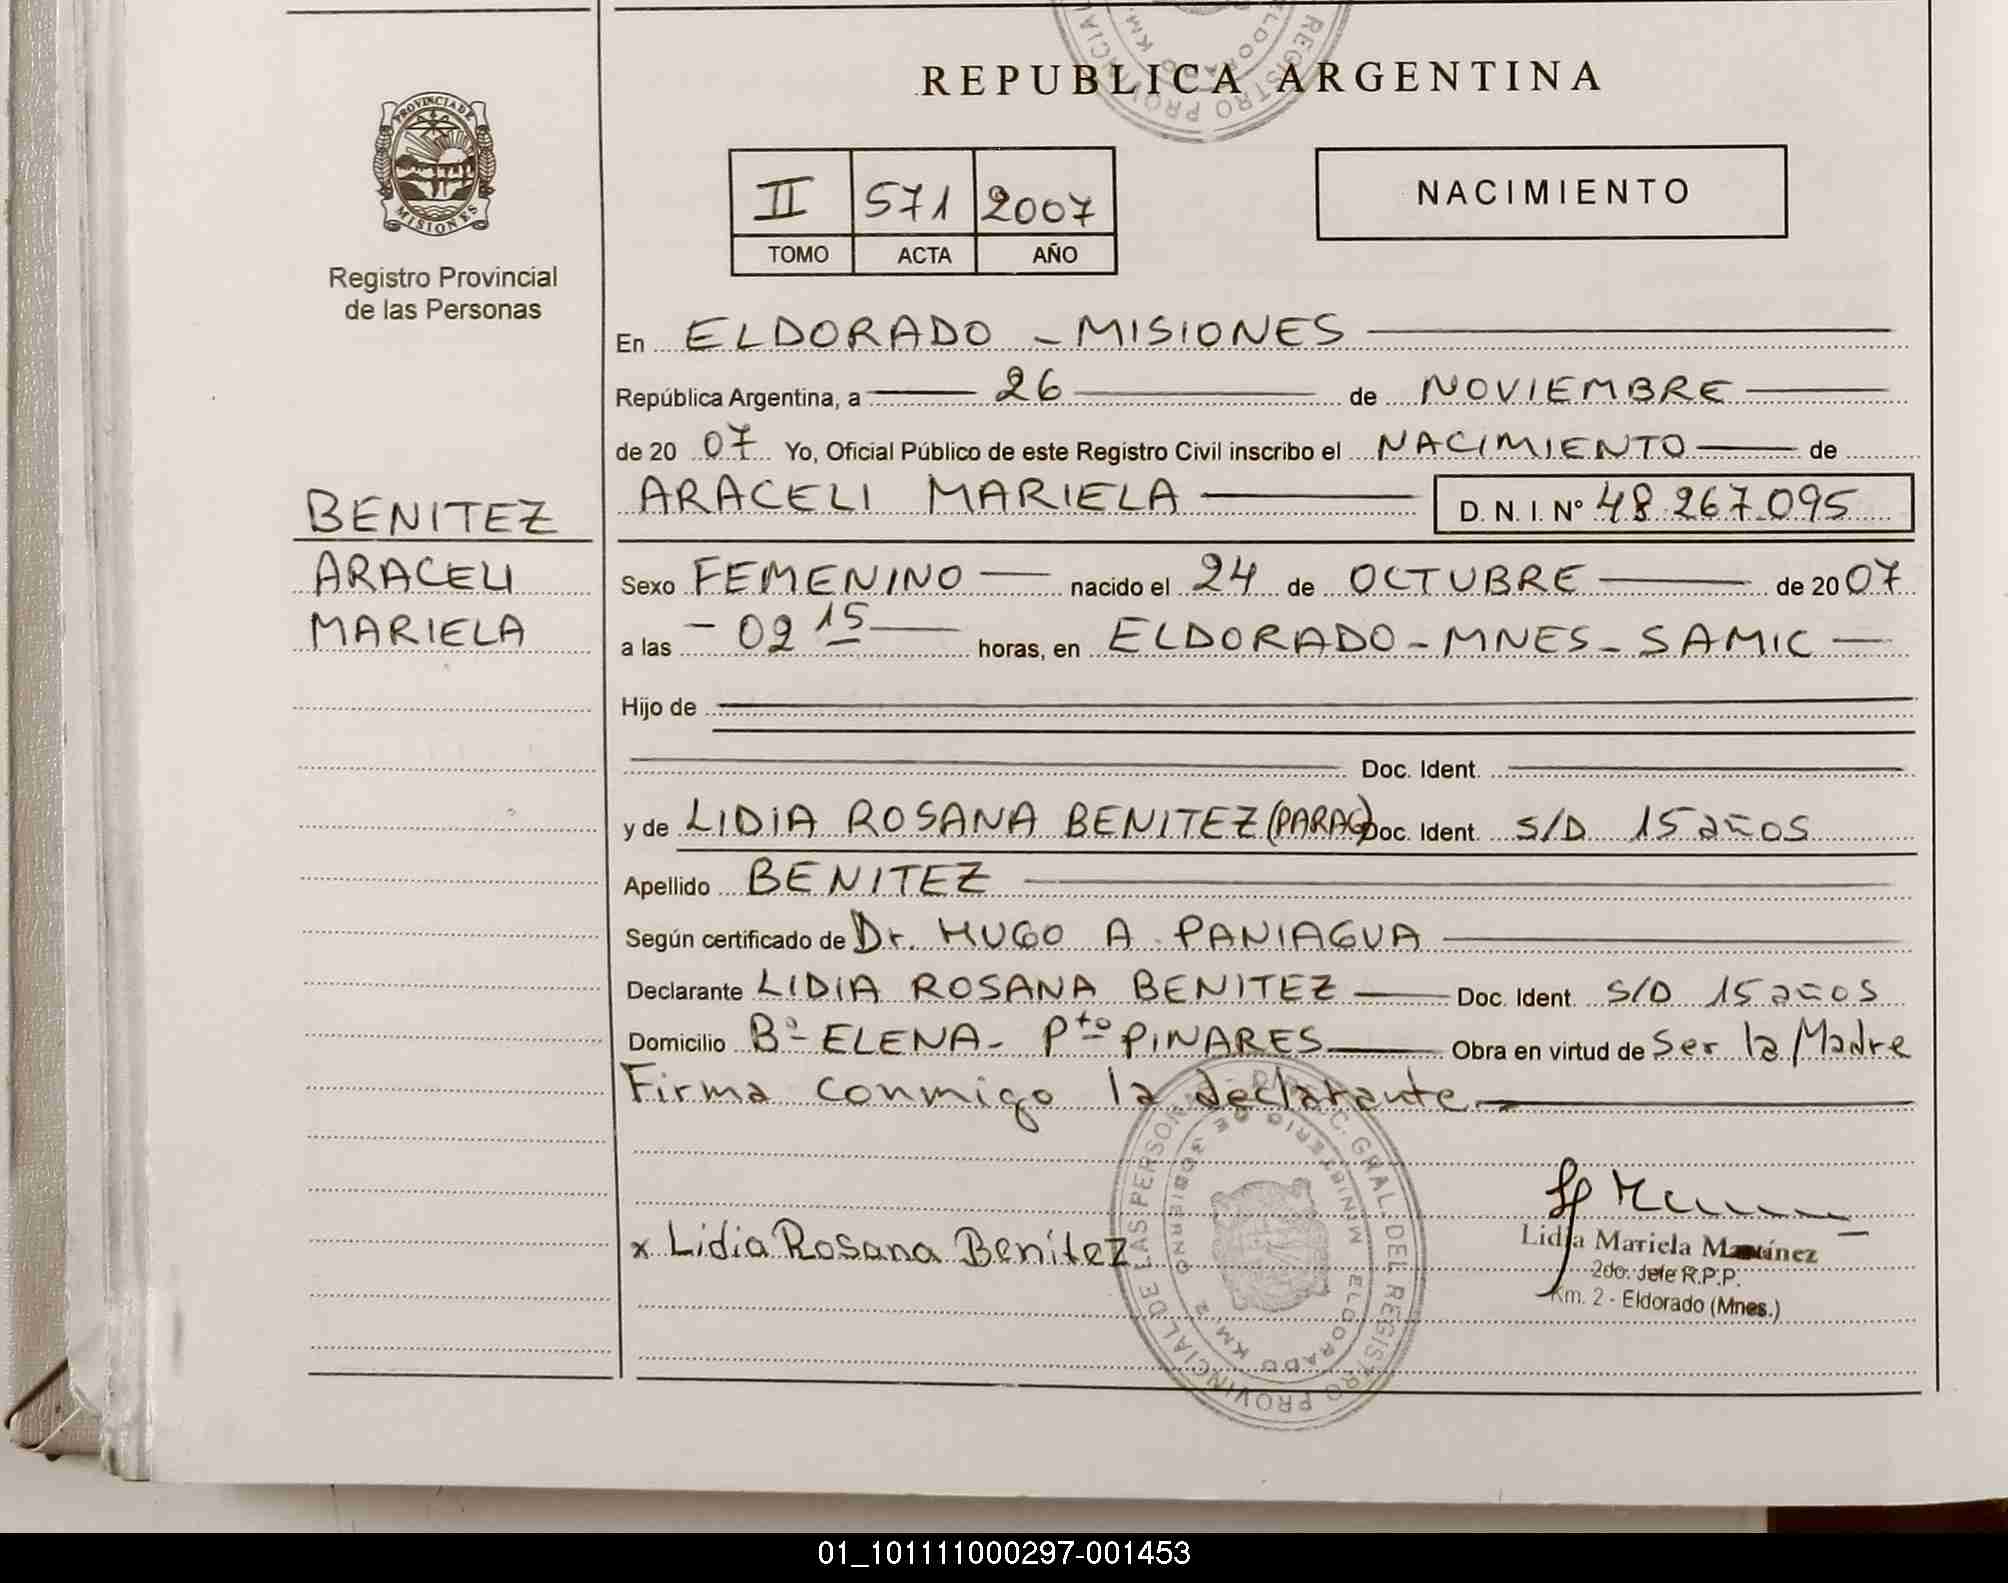 REPUBLICA ARGENTINA
PROVINCIA DE
MISIONES
Registro Provincial
de las Personas
II 571 2007
TOMO ACTA AÑO
NACIMIENTO
En ELDORADO - MISIONES
República Argentina, a 26 de NOVIEMBRE
de 20 07 Yo, Oficial Público de este Registro Civil inscribo el NACIMIENTO de
ARACELI MARIELA D. N. I. Nº 48.267.095
BENITEZ
ARACELI
MARIELA
Sexo FEMENINO nacido el 24 de OCTUBRE de 20 07
a las - 02 15 horas, en ELDORADO - MNES - SAMIC
Hijo de
Doc. Ident.
y de LIDIA ROSANA BENITEZ (PARAG) Doc. Ident. S/D 15 años
Apellido BENITEZ
Según certificado de Dr. HUGO A. PANIAGUA
Declarante LIDIA ROSANA BENITEZ Doc. Ident. S/D 15 años
Domicilio Bº ELENA - Pto PINARES Obra en virtud de Ser la Madre
Firma conmigo la declarante
x Lidia Rosana Benitez
Lidia Mariela Martínez
2do. Jefe R.P.P.
Km. 2 - Eldorado (Mnes.)
REGISTRO PROVINCIAL DE LAS PERSONAS
MINISTERIO DE GOBIERNO
ELDORADO KM 2
01_101111000297-001453